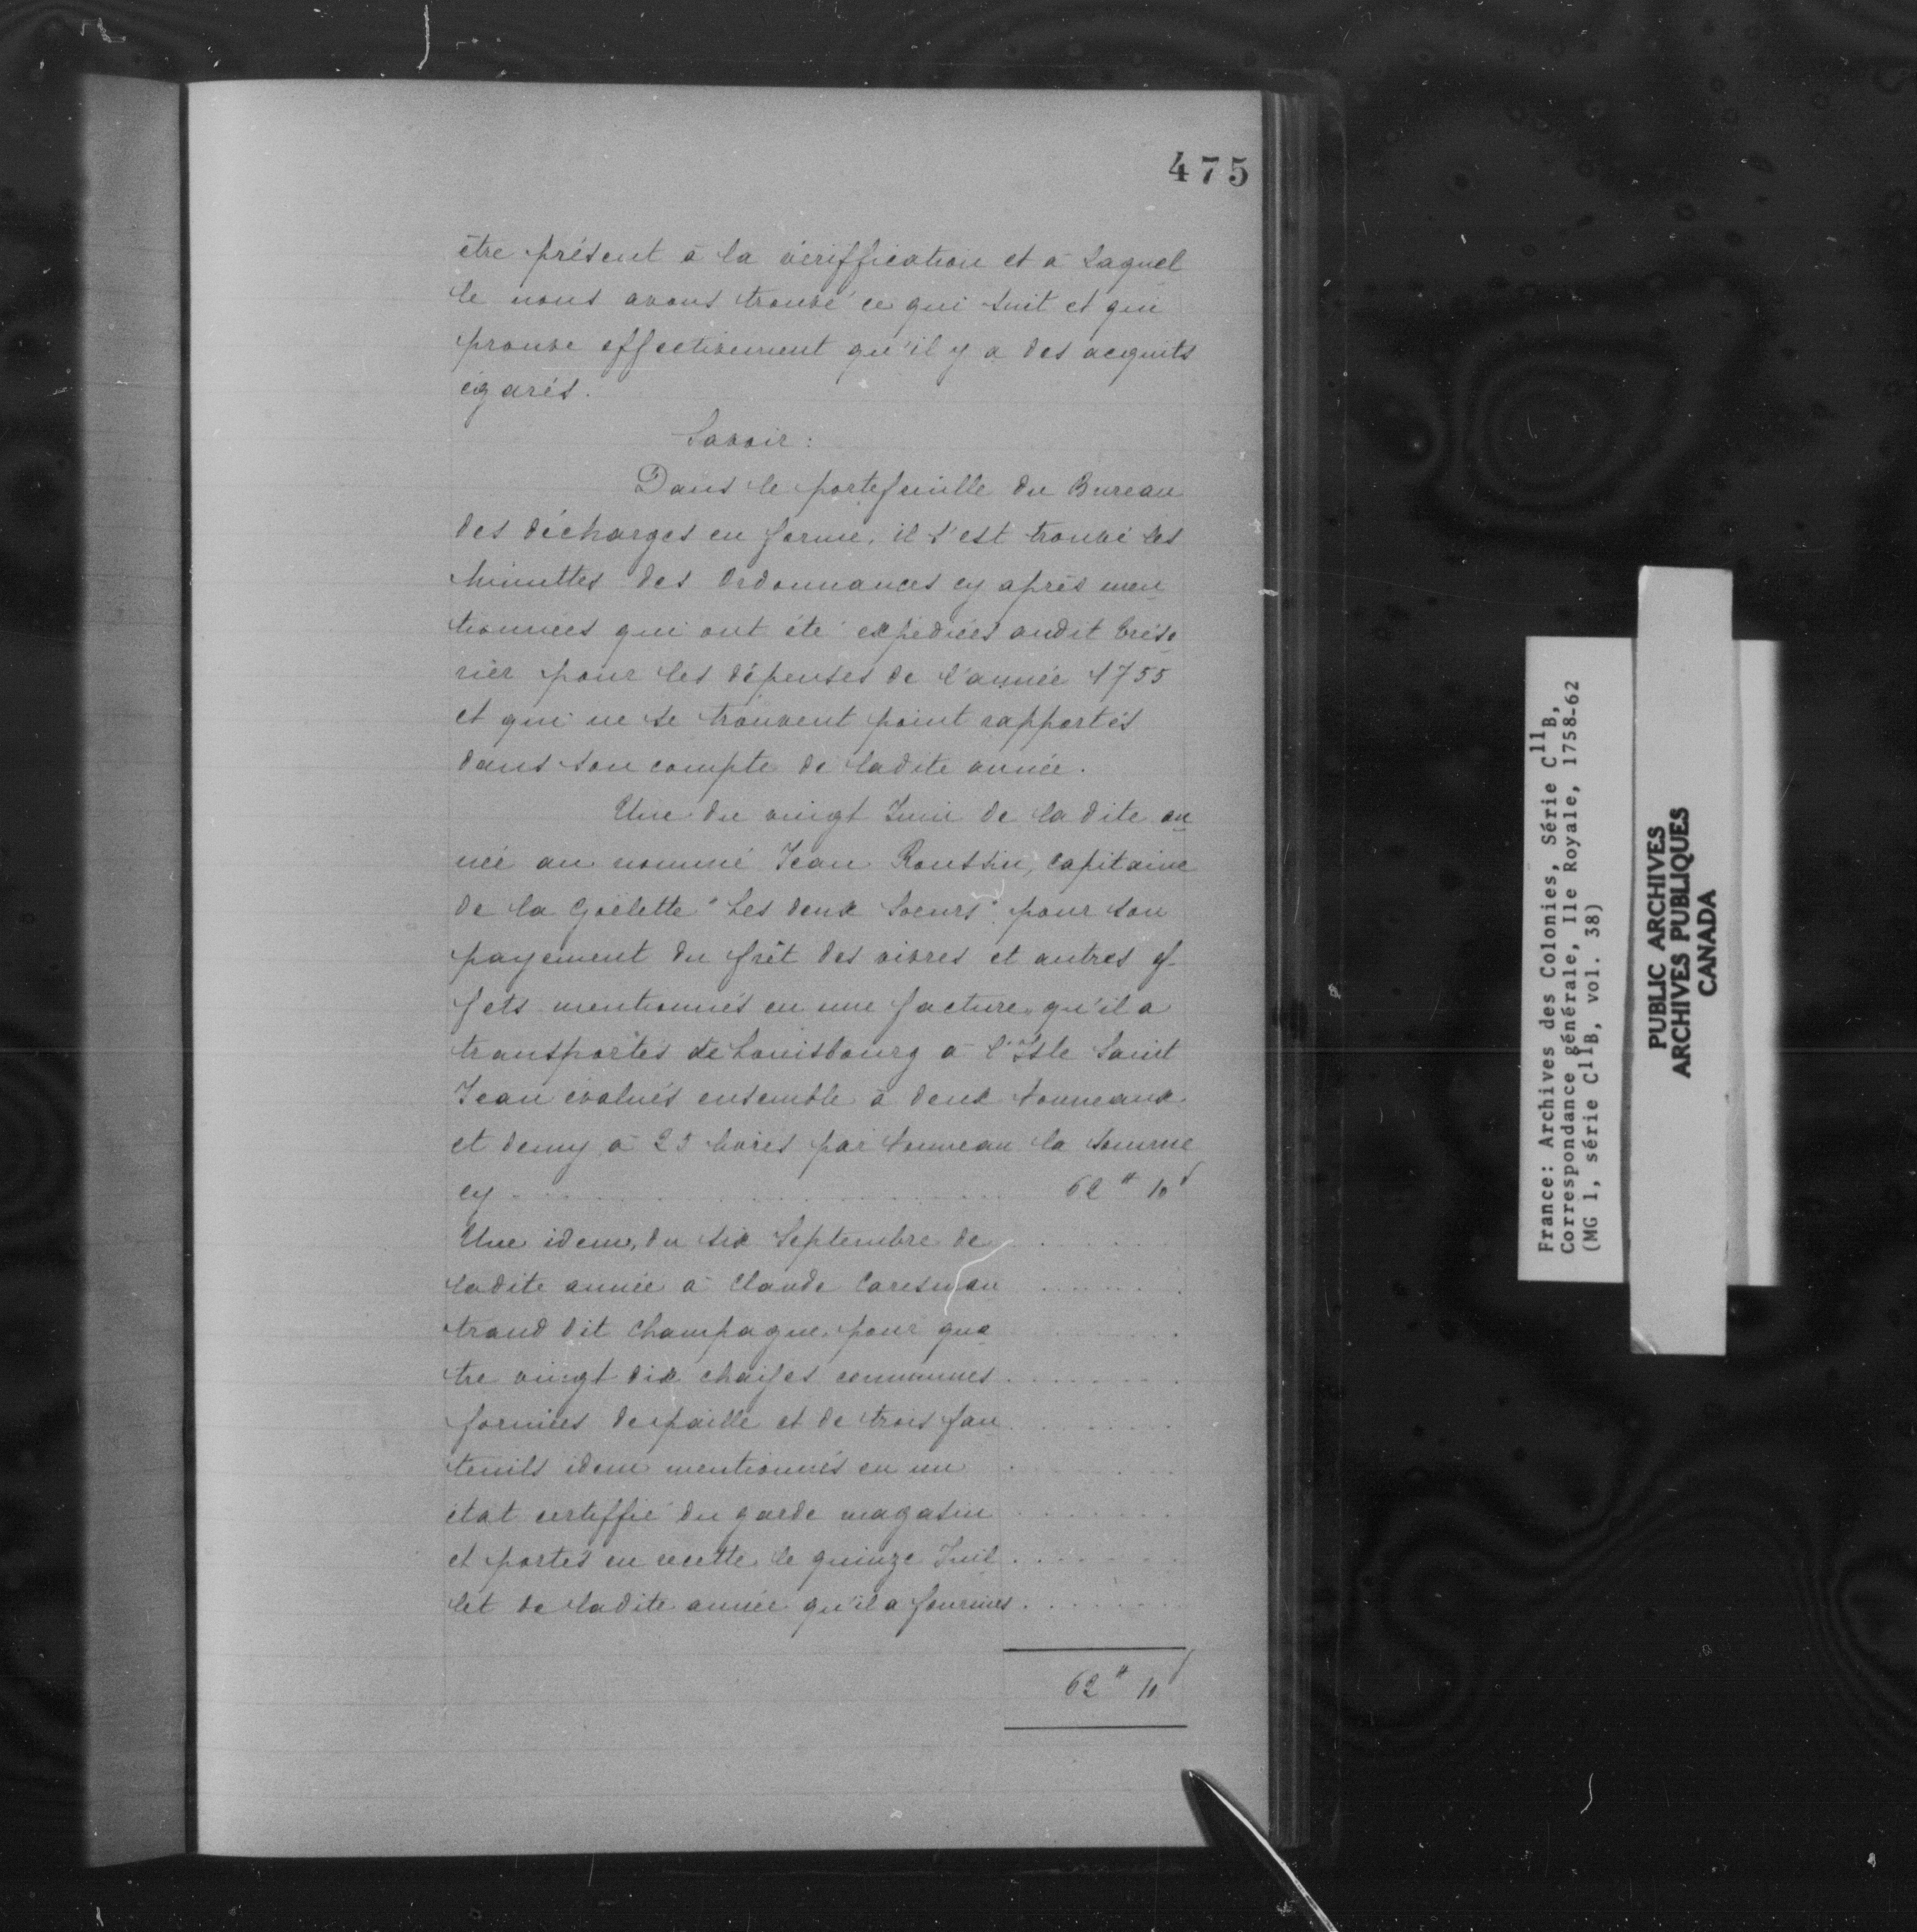 475
être présent à la vériffication et à Laquel
le nous avons trouvé ce qui suit et qui
prouve effectivement qu'il y a des acquits
égarés.
Savoir :
Dans le portefeuille du Bureau
des décharges en forme, il s'est trouvé les
Minuttes des Ordonnances cy après men
tionnées qui ont été expédiées audit tréso
rier pour les dépenses de l'année 1755
et qui ne se trouvent point rapportés
dans son compte de ladite année.
Une du vingt Juin de la dite an
née au nommé Jean Roussin, Capitaine
de la Goëlette "Les deux Soeurs" pour son
payement du frêt des vivres et autres ef
fets mentionnés en une facture qu'il a
transportés de Louisbourg à l'Isle Saint
Jean évalués ensemble à deux tonneaux
et demy à 25 livres par tonneau la somme
cy . . . . . . . . . . 62# 10s
Une idem, du six Septembre de . . . . .
ladite année à Claude Caresman . . . . .
trand dit Champagne, pour qua . . . . .
tre vingt dix chaises communes . . . . .
formées de paille et de trois fau . . . . .
teuils idem mentionnés en un . . . . .
état certiffié du garde magasin . . . . .
et portés en recette le quinze Juil . . . . .
let de ladite année qu'il a fournies . . . . .
62# 10s
France: Archives des Colonies, Série C11B,
Correspondance générale, Ile Royale, 1758-62
(MG 1, série C11B, vol. 38)
PUBLIC ARCHIVES
ARCHIVES PUBLIQUES
CANADA